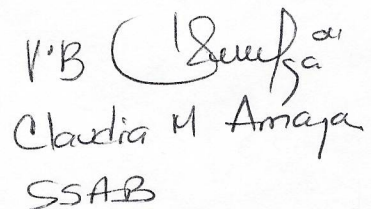 V°B
Claudia M Amaya
SSAB